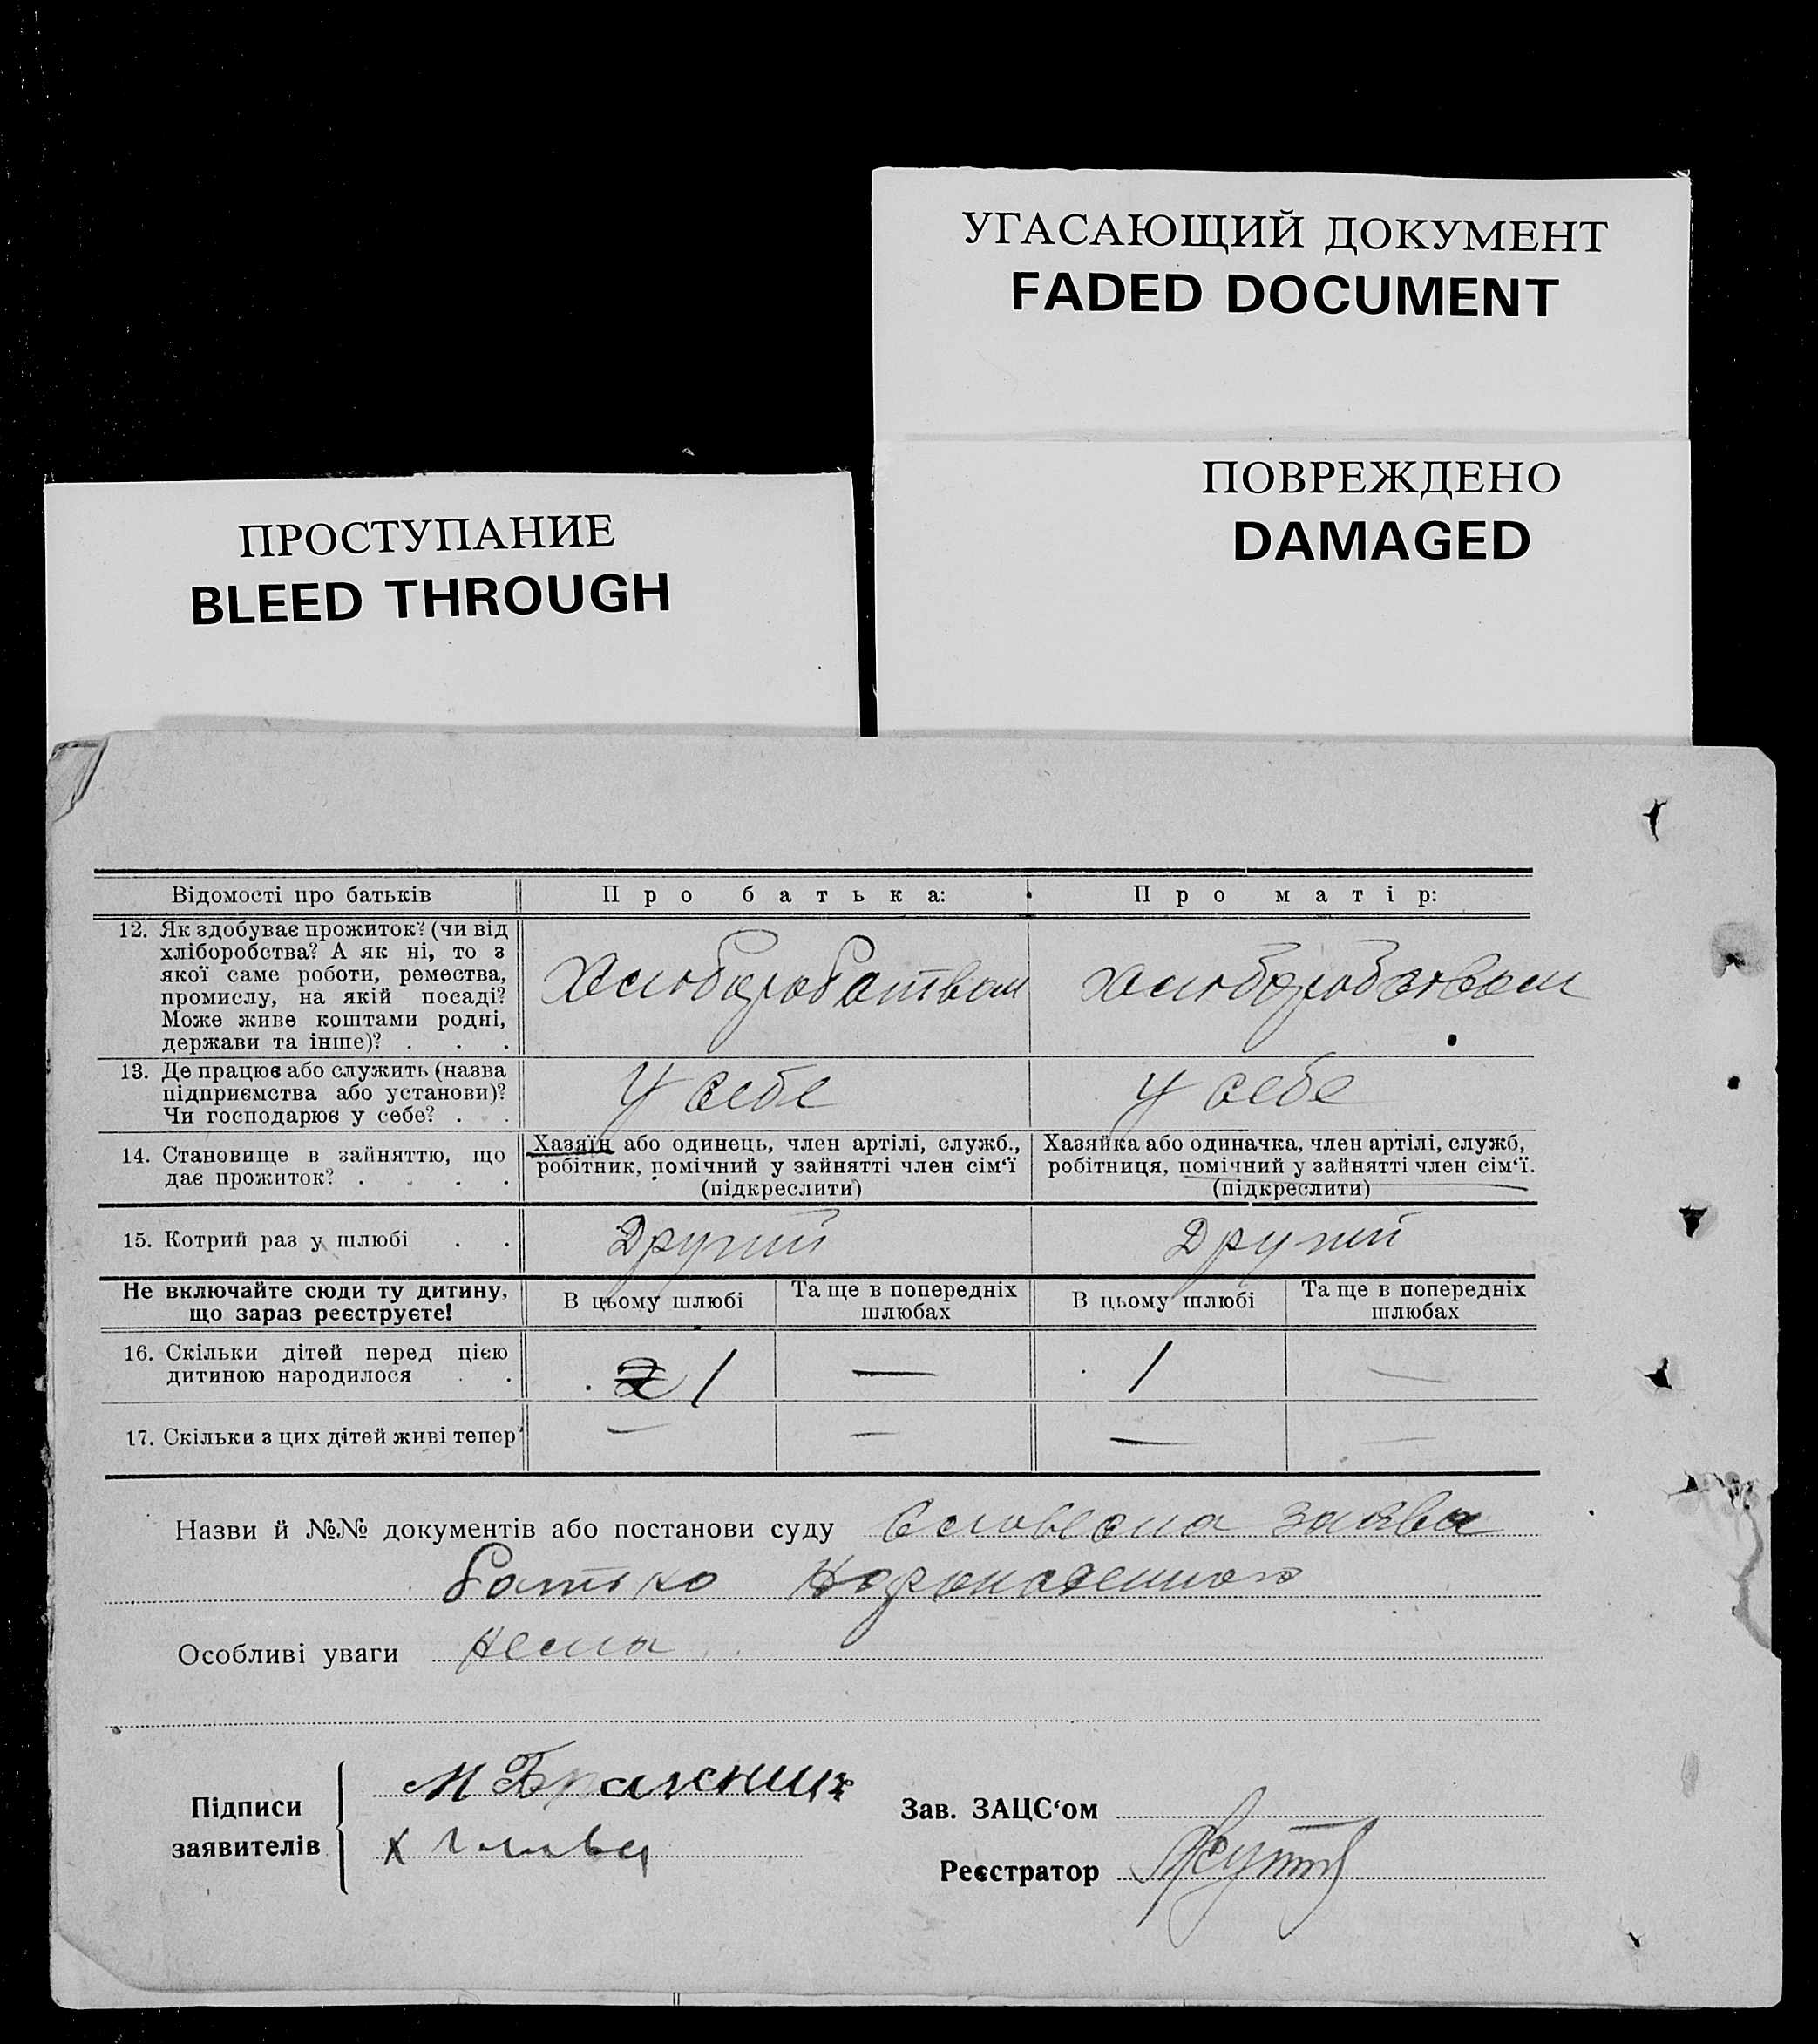 УГАСАЮЩИЙ ДОКУМЕНТ
FADED DOCUMENT
ПОВРЕЖДЕНО
DAMAGED
ПРОСТУПАНИЕ
BLEED THROUGH
Відомості про батьків Про батька: Про матір:
12. Як здобуває прожиток? (чи від
хліборобства? А як ні, то з
якої саме роботи, ремества,
промислу, на якій посаді?
Може живе коштами родні,
держави та інше)? . . .
13. Де працює або служить (назва
підприємства або установи)?
Чи господарює у себе? . .
У себе У себе
14. Становище в зайняттю, що
дає прожиток? . . . .
Хазяїн або одинець, член артілі, служб.,
робітник, помічний у зайнятті член сім'ї
(підкреслити)
Хазяйка або одиначка, член артілі, служб,
робітниця, помічний у зайнятті член сім'ї.
(підкреслити)
15. Котрий раз у шлюбі . . Другий Другий
Не включайте сюди ту дитину,
що зараз реєструєте!
В цьому шлюбі
Та ще в попередніх
шлюбах
В цьому шлюбі
Та ще в попередніх
шлюбах
16. Скільки дітей перед цією
дитиною народилося . .
2 1 — 1 —
17. Скільки з цих дітей живі тепер? — — — —
Назви й №№ документів або постанови суду Словесна заява
Особливі уваги нема
Підписи
заявителів
М Бражник
Зав. ЗАЦС'ом
Реєстратор